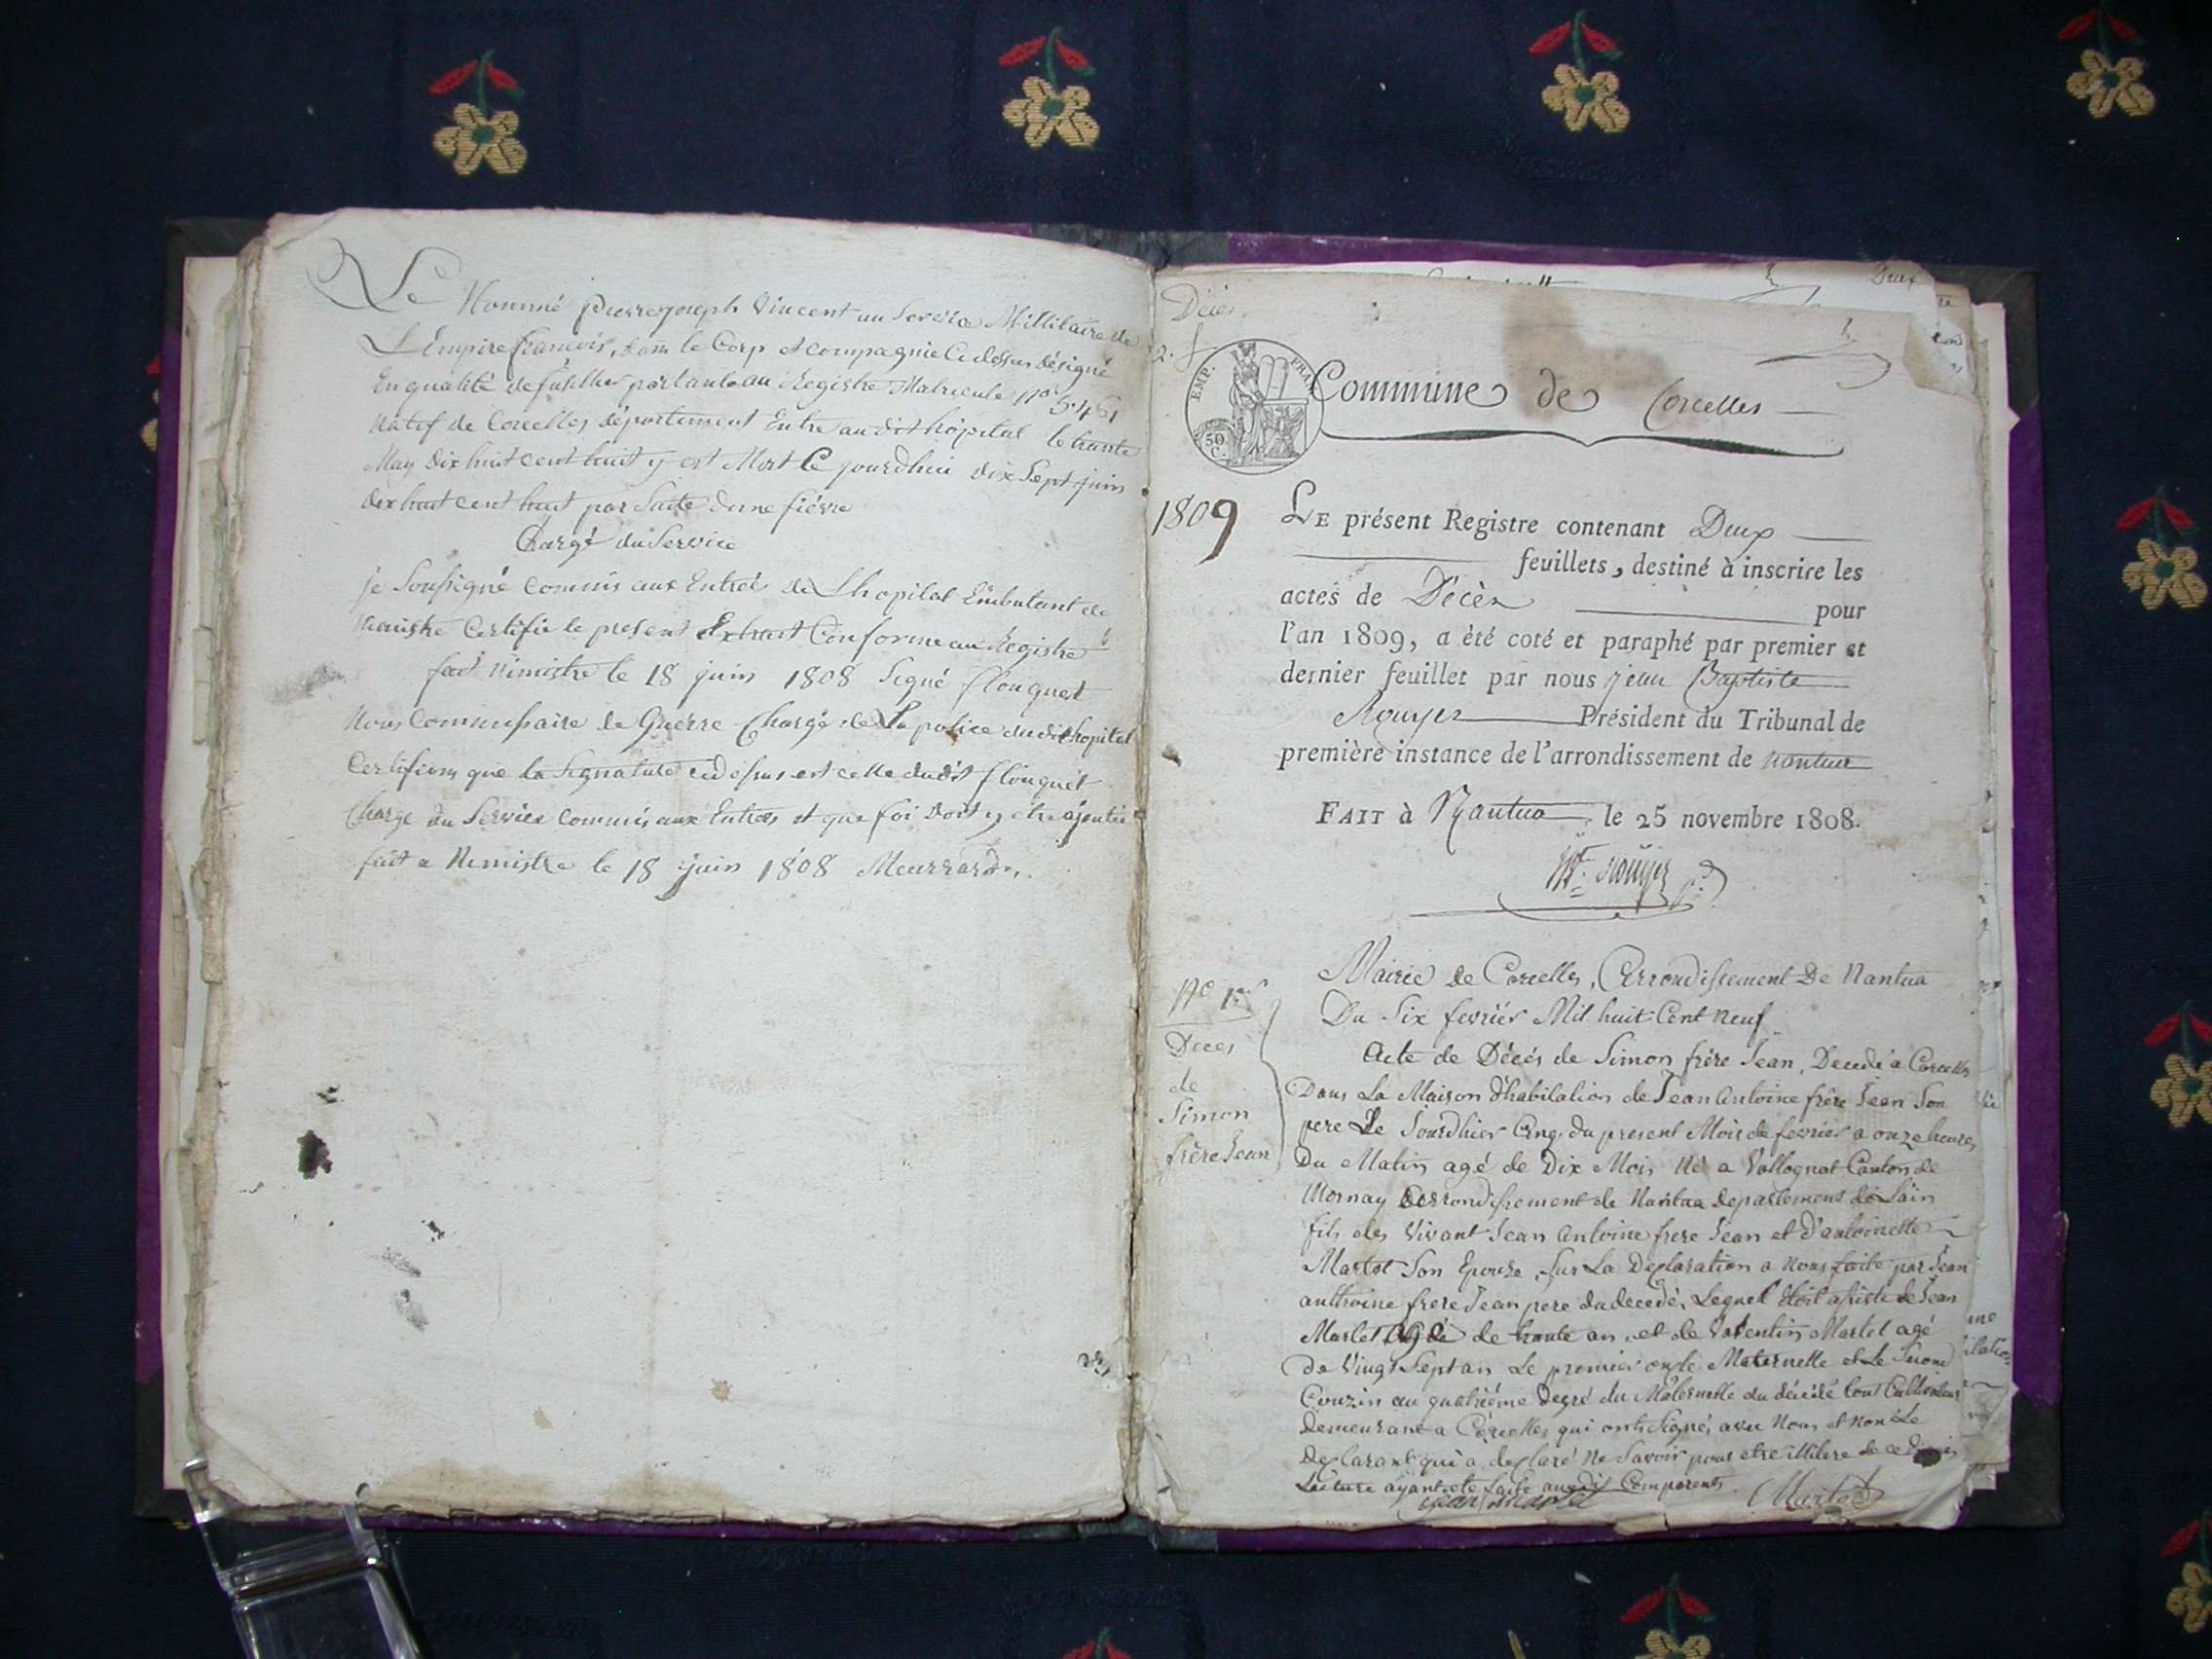 Le Nommé pierre joseph Vincent au Service Millitaire de
L'Empire francois, dans le Corp et compagnie Cidessus désigné
En qualité de fusillier portant au Registre Matricule No 5461
Natif de Corcelles département Entré audit hôpital le trante
May dix huit cent huit y est Mort Ce jourdhui dix Sept juin
dix huit cent huit par Suite dune fièvre
Chargé du Service
je Soussigné Commis aux Entrés de Lhopital
Certifie le present Extrait Conforme au Registre
fait le 18 juin 1808 Signé flouquet
Nous Commissaire de Guerre Chargé de La police dudit hopital
Certifions que la Signature cidessus est celle dudit flouquet
Chargé du Service Commis aux Entrées et que foi doit y être ajoutée
fait a le 18 juin 1808
Décès
2.
EMP. FRAN
50 C.
Commune de Corcelles
1809
LE présent Registre contenant Deux
feuillets, destiné à inscrire les
actes de Décès pour
l'an 1809, a été coté et paraphé par premier et
dernier feuillet par nous jean Baptiste
Rouyer Président du Tribunal de
première instance de l'arrondissement de nantua
FAIT à Nantua le 25 novembre 1808.
Rouyer
Mairie de Corcelles, Arrondissement De Nantua
Du Six fevrier Mil huit Cent neuf
No 1er
Deces
de
Simon
frère Jean
Acte de Décés de Simon frère Jean, Decedé a Corcelles
Dans La Maison d'habitation de Jean Antoine frère Jean Son
pere Le Jourdhier Cinq du present Mois de fevrier a onze heures
Du Matin agé de Dix Mois Né a Vollognat Canton de
Mornay Arrondissement de Nantua departement de Lain
fils des Vivant Jean Antoine frere Jean et d'antoinette
Martet Son Epouse, Sur La Declaration a Nous faite par Jean
anthoine frere Jean pere du decedé, Lequel étoit assisté de Jean
Martet agé de trante an, et de Valentin Martet agé
De Vingt Sept an Le premier oncle Maternelle et Le Second
Couzin au quatrième degré du Maternelle du décédé tout Cultivateur
Demeurant a Corcelles qui ont Signés avec Nous et Non Le
Declarant qui a declaré Ne Savoir pour etre illitere de ce
Lecture ayant été faite auxdit Comparents.
jean martet
Martet